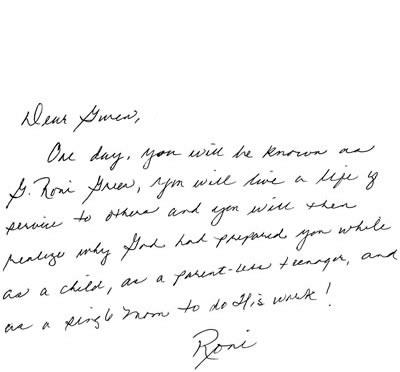 Dear Gwen,
One day, you will be known as
G. Roni Green, you will live a life of
service to others and you will then
realize why God had prepared you while
as a child, as a parent-less teenager, and
as a single mom to do His work!
Roni